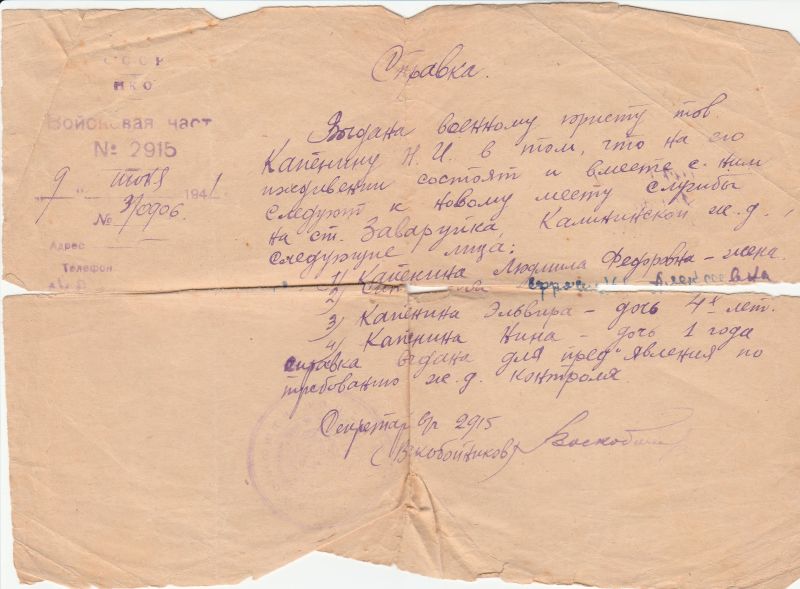 СССР
НКО
Войсковая част
№ 2915
"9" июня 1941
№ 3/0906.
Адрес
Телефон
Справка.
Выдана военному юристу тов.
Капенину Н. И. в том, что на его
иждивении состоят и вместе с ним
следуют к новому месту службы
на ст. Заваруйка, Калининской ж. д.,
следующие лица:
1) Капенина Людмила Федоровна – жена.
2) Алексеевна
3) Капенина Эльвира – дочь 4х лет.
4) Капенина Нина – дочь 1 года
справка выдана для пред"явления по
требованию ж. д. контроля.
Секретар 2915